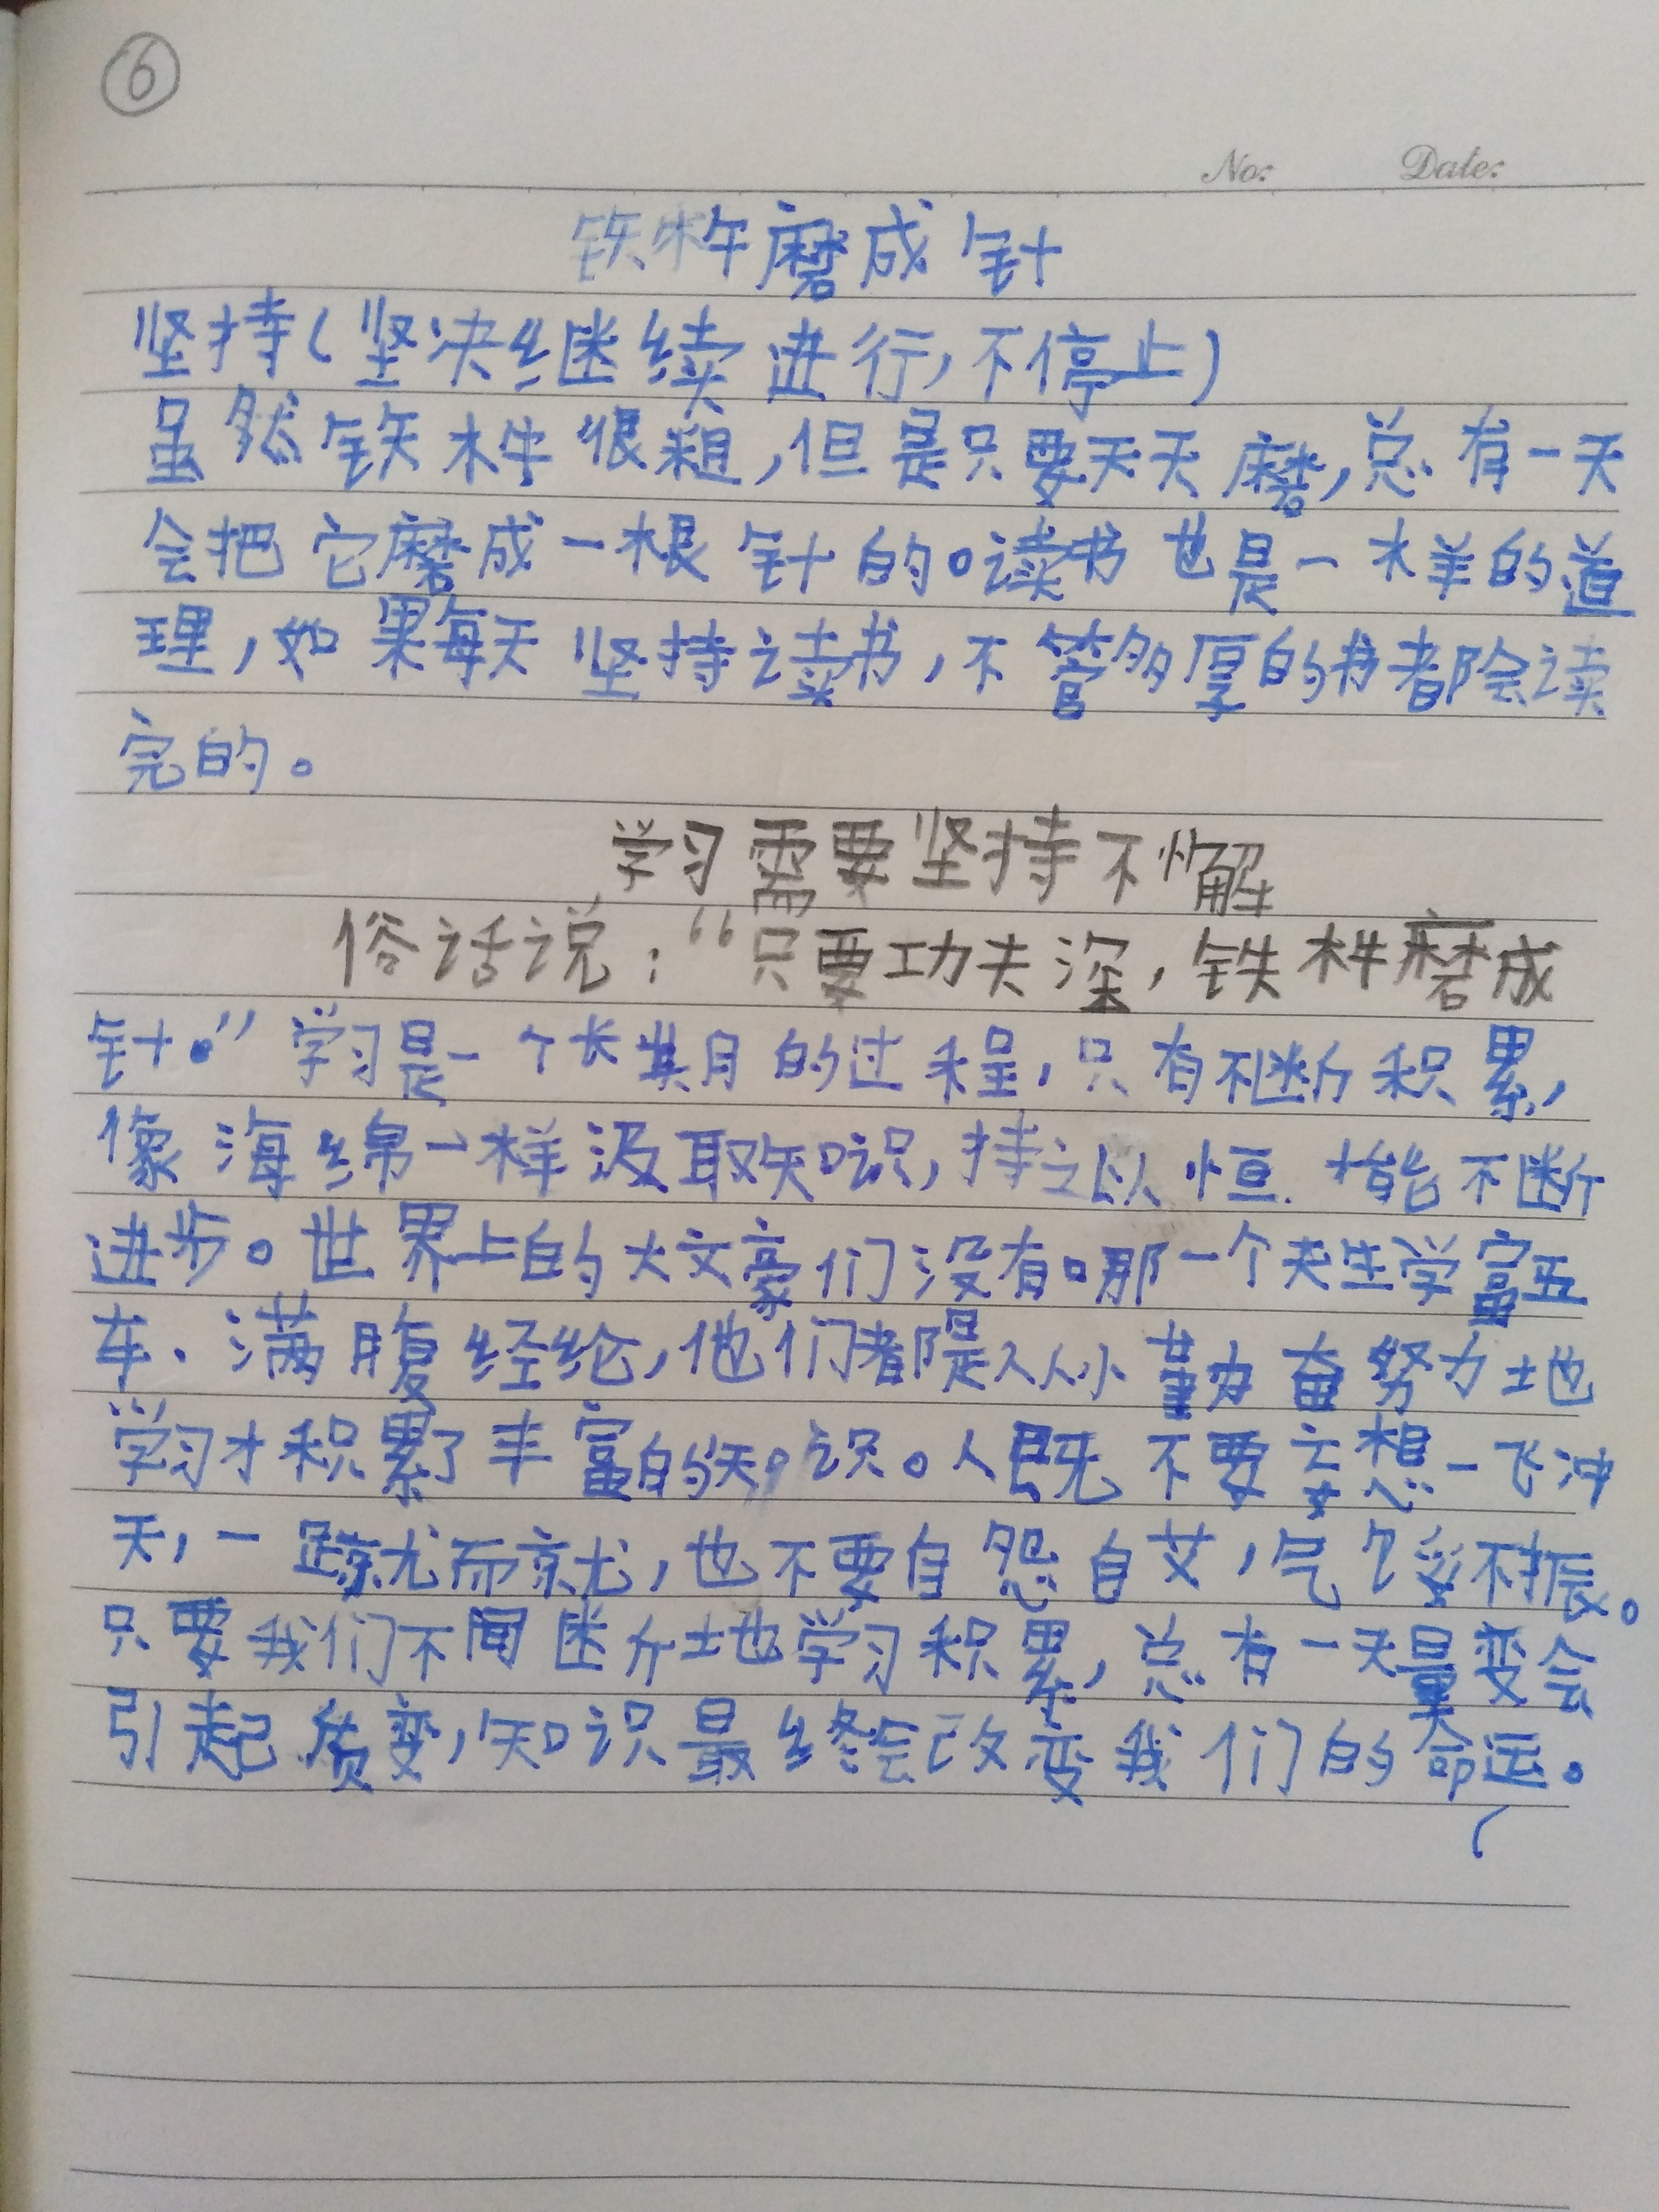 ⑥
No: Date:
铁杵磨成针
坚持(坚决继续进行,不停止)
虽然铁杵很粗,但是只要天天磨,总有一天
会把它磨成一根针的。读书也是一样的道
理,如果每天坚持读书,不管多厚的书都会读
完的。
学习需要坚持不懈
俗话说:“只要功夫深,铁杵磨成
针。”学习是一个长期的过程,只有不断积累,
像海绵一样汲取知识,持之以恒.才能不断
进步。世界上的大文豪们没有哪一个天生学富五
车、满腹经纶,他们都是从小勤奋努力地
学习才积累了丰富的知识。人既不要妄想一飞冲
天,一蹴而就,也不要自怨自艾,气馁不振。
只要我们不间断地学习积累,总有一天量变会
引起质变,知识最终会改变我们的命运。